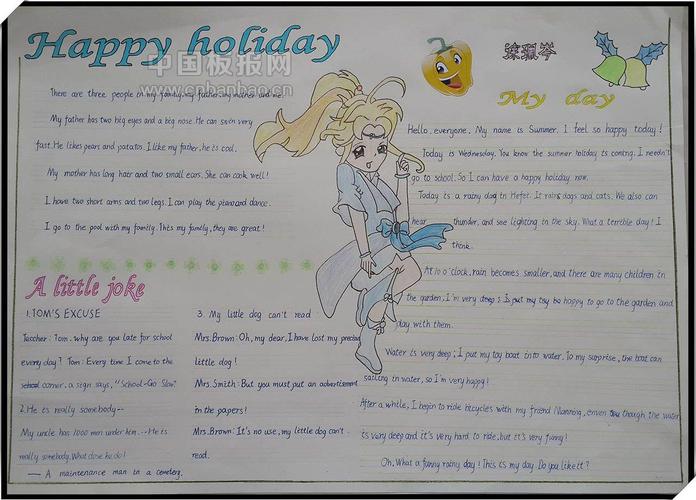 Happy holiday
中国板报网
www.cnbanbao.cn
There are three people in my family, my father, my mother and me.
My father has two big eyes and a big nose. He can swim very
fast. He likes pears and potatos. I like my father, he is cool.
My mother has long hair and two small ears. She can cook well!
I have two short arms and two legs. I can play the piano and dance.
I go to the pool with my family. This my family, they are great!
A little joke
1. TOM'S EXCUSE
Teacher: Tom, why are you late for school
every day? Tom: Every time I come to the
school corner, a sign says, "School-Go Slow"
2. He is really somebody--
My uncle has 1000 men under him.--He is
really somebody. What does he do?
— A maintenance man in a cemetery.
3. My little dog can't read
Mrs. Brown: Oh, my dear, I have lost my precious
little dog!
Mrs Smith: But you must put an advertisement
in the papers!
Mrs. Brown: It's no use, my little dog can't
read.
My day
Hello, everyone. My name is Summer. I feel so happy today!
Today is Wednesday. You know the summer holiday is coming. I needn't
go to school. So I can have a happy holiday now.
Today is a rainy day in Hefei. It rains dogs and cats. We also can
hear thunder, and see lighting in the sky. What a terrible day! I
think.
At 10 o'clock, rain becomes smaller, and there are many children in
the garden, I'm very happy to go to the garden and
play with them.
Water is very deep; I put my toy boat into water. To my surprise, the boat can
sailing in water, so I'm very happy!
After a while, I begin to ride bicycles with my friend though the water
is very deep and it's very hard to ride, but it's very funny!
Oh, What a funny rainy day! This is my day. Do you like it?